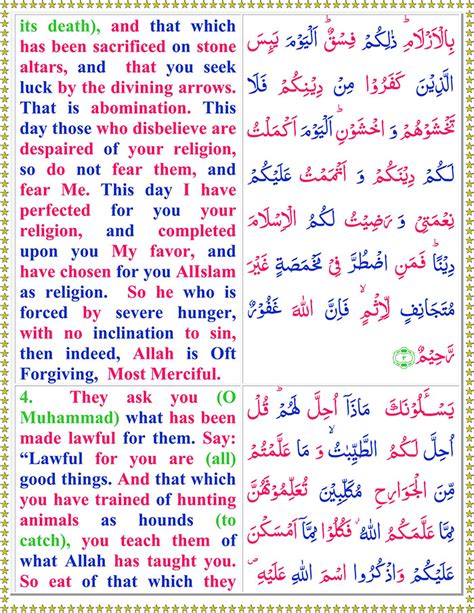 its death), and that which
has been sacrificed on stone
altars, and that you seek
luck by the divining arrows.
That is abomination. This
day those who disbelieve are
despaired of your religion,
so do not fear them, and
fear Me. This day I have
perfected for you your
religion, and completed
upon you My favor, and
have chosen for you AlIslam
as religion. So he who is
forced by severe hunger,
with no inclination to sin,
then indeed, Allah is Oft
Forgiving, Most Merciful.
بِالْاَزْلَامِؕ ذٰلِكُمْ فِسْقٌؕ اَلْيَوْمَ يَىِٕسَ
الَّذِيْنَ كَفَرُوْا مِنْ دِيْنِكُمْ فَلَا
تَخْشَوْهُمْ وَ اخْشَوْنِؕ اَلْيَوْمَ اَكْمَلْتُ
لَكُمْ دِيْنَكُمْ وَ اَتْمَمْتُ عَلَيْكُمْ
نِعْمَتِيْ وَ رَضِيْتُ لَكُمُ الْاِسْلَامَ
دِيْنًاؕ فَمَنِ اضْطُرَّ فِيْ مَخْمَصَةٍ غَيْرَ
مُتَجَانِفٍ لِّاِثْمٍۙ فَاِنَّ اللّٰهَ غَفُوْرٌ
رَّحِيْمٌ ﴿۳﴾
4. They ask you (O
Muhammad) what has been
made lawful for them. Say:
“Lawful for you are (all)
good things. And that which
you have trained of hunting
animals as hounds (to
catch), you teach them of
what Allah has taught you.
So eat of that which they
يَسْـَٔلُوْنَكَ مَاذَاۤ اُحِلَّ لَهُمْؕ قُلْ
اُحِلَّ لَكُمُ الطَّيِّبٰتُۙ وَ مَا عَلَّمْتُمْ
مِّنَ الْجَوَارِحِ مُكَلِّبِيْنَ تُعَلِّمُوْنَهُنَّ
مِمَّا عَلَّمَكُمُ اللّٰهُؗ فَكُلُوْا مِمَّاۤ اَمْسَكْنَ
عَلَيْكُمْ وَاذْكُرُوا اسْمَ اللّٰهِ عَلَيْهِ۪